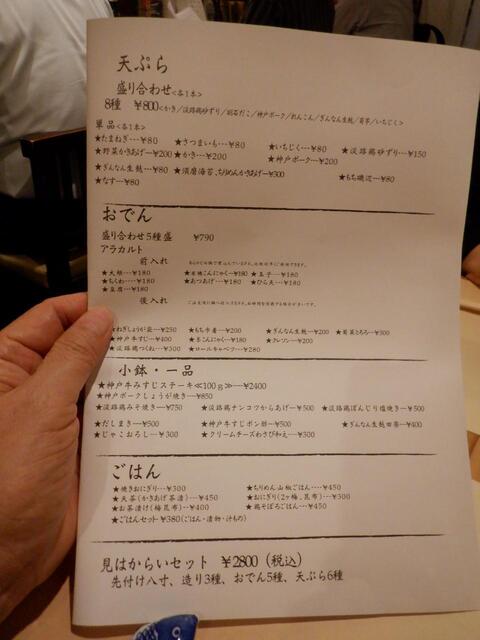 天ぷら
盛り合わせ<各1本>
8種 ¥800<かき/淡路鶏砂ずり/明石だこ/神戸ポーク/れんこん/ぎんなん生麩/菊芋/いちじく>
単品<各1本>
★たまねぎ…¥80 ★さつまいも…¥80 ★いちじく…¥80 ★淡路鶏砂ずり…¥150
★野菜かきあげ…¥200 ★かき…¥200 ★神戸ポーク…¥200
★ぎんなん生麩…¥80 ★須磨海苔、ちりめんかきあげ…¥300 ★もち磯辺…¥80
★なす…¥80
おでん
盛り合わせ5種盛 ¥790
アラカルト
前入れ
★大根…¥180 こんにゃく…¥180 ★玉子…¥180
★ちくわ…¥180 ★あつあげ…¥180 ★ひら天…¥180
★豆腐…¥180
後入れ
ねぎしょうが袋…¥250 ★もち巾着…¥200 ★ぎんなん生麩…¥200 ★菊菜とろろ…¥300
★神戸牛すじ…¥400 こんにゃく…¥180 ★クレソン…¥200
★淡路鶏つくね…¥300 ★ロールキャベツ…¥280
小鉢・一品
★神戸牛みすじステーキ≪100g≫…¥2400
★神戸ポークしょうが焼き…¥850
★淡路鶏みそ焼き…¥750 ★淡路鶏ナンコツからあげ…¥500 ★淡路鶏ぼんじり塩焼き…¥500
★だしまき…¥500 ★神戸牛すじポン酢…¥500 ★ぎんなん生麩田楽…¥400
★じゃこおろし…¥300 ★クリームチーズわさび和え…¥300
ごはん
★焼きおにぎり…¥300 ★ちりめん山椒ごはん…¥450
★天茶(かきあげ茶漬)…¥450 ★おにぎり(2ヶ梅、昆布)…¥300
★お茶漬け(梅昆布)…¥400 ★鶏そぼろごはん…¥450
★ごはんセット¥380(ごはん・漬物・汁もの)
見はからいセット ¥2800(税込)
先付け八寸、造り3種、おでん5種、天ぷら6種